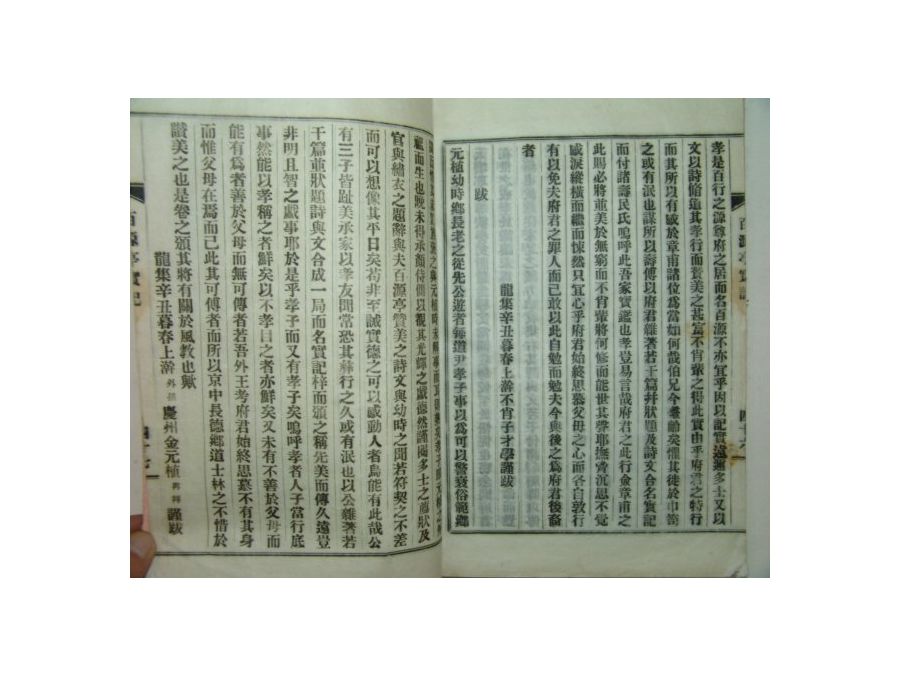 孝是百行之源尊府之居而名百源不亦宜乎因以記實遠邇多士又以
文以詩脩追其孝行而贊美之甚富不肖輩之得此實由乎府君之特行
而其所以有感於章甫諸位爲當如何哉伯兄今耋齡矣懼其徒於巾笥
之或有泯也謀所以壽傳以府君雜著若干篇幷狀題及詩文合名實記
而付諸壽民氏嗚呼此吾家寶鑑也孝豈易言哉府君之此行僉章甫之
此賜必將並美於無窮而不肖輩將何修而能世其聲耶撫書沉思不覺
感淚縱橫而繼而悚然只宜心乎府君始終思慕父母之心而各自敦行
有以免夫府君之罪人而已敢以此自勉而勉夫今與後之爲府君後裔
者
龍集辛丑暮春上澣不肖子才學謹跋
跋
元植幼時鄕長老之從先公遊者每道尹孝子事以爲可以警衰俗範鄕
祖而生也晩未得承顔侍側以觀其光輝之獻德然謹閱多士之薦狀及
官與繡衣之題辭與夫百源亭贊美之詩文與幼時之聞若符契之不差
而可以想像其平日矣苟非至誠實德之可以感動人者烏能有此哉公
有三子皆趾美承家以孝友聞常恐其彝行之久或有泯也以公雜著若
干篇並狀題詩與文合成一局而名實記梓而頒之稱先美而傳久遠豈
非明且智之獻事耶於是乎孝子而又有孝子矣嗚呼孝者人子當行底
事然能以孝稱之者鮮矣以不孝目之者亦鮮矣又未有不善於父母而
能有爲者善於父母而無可傳者若吾外王考府君始終思慕不有其身
而惟父母在焉而已此其可傳者而所以京中長德鄕道士林之不惜於
讚美之也是卷之頒其將有關於風敎也歟
龍集辛丑暮春上澣 外孫 慶州金元植 再拜 謹跋
百源亭實記
四十七